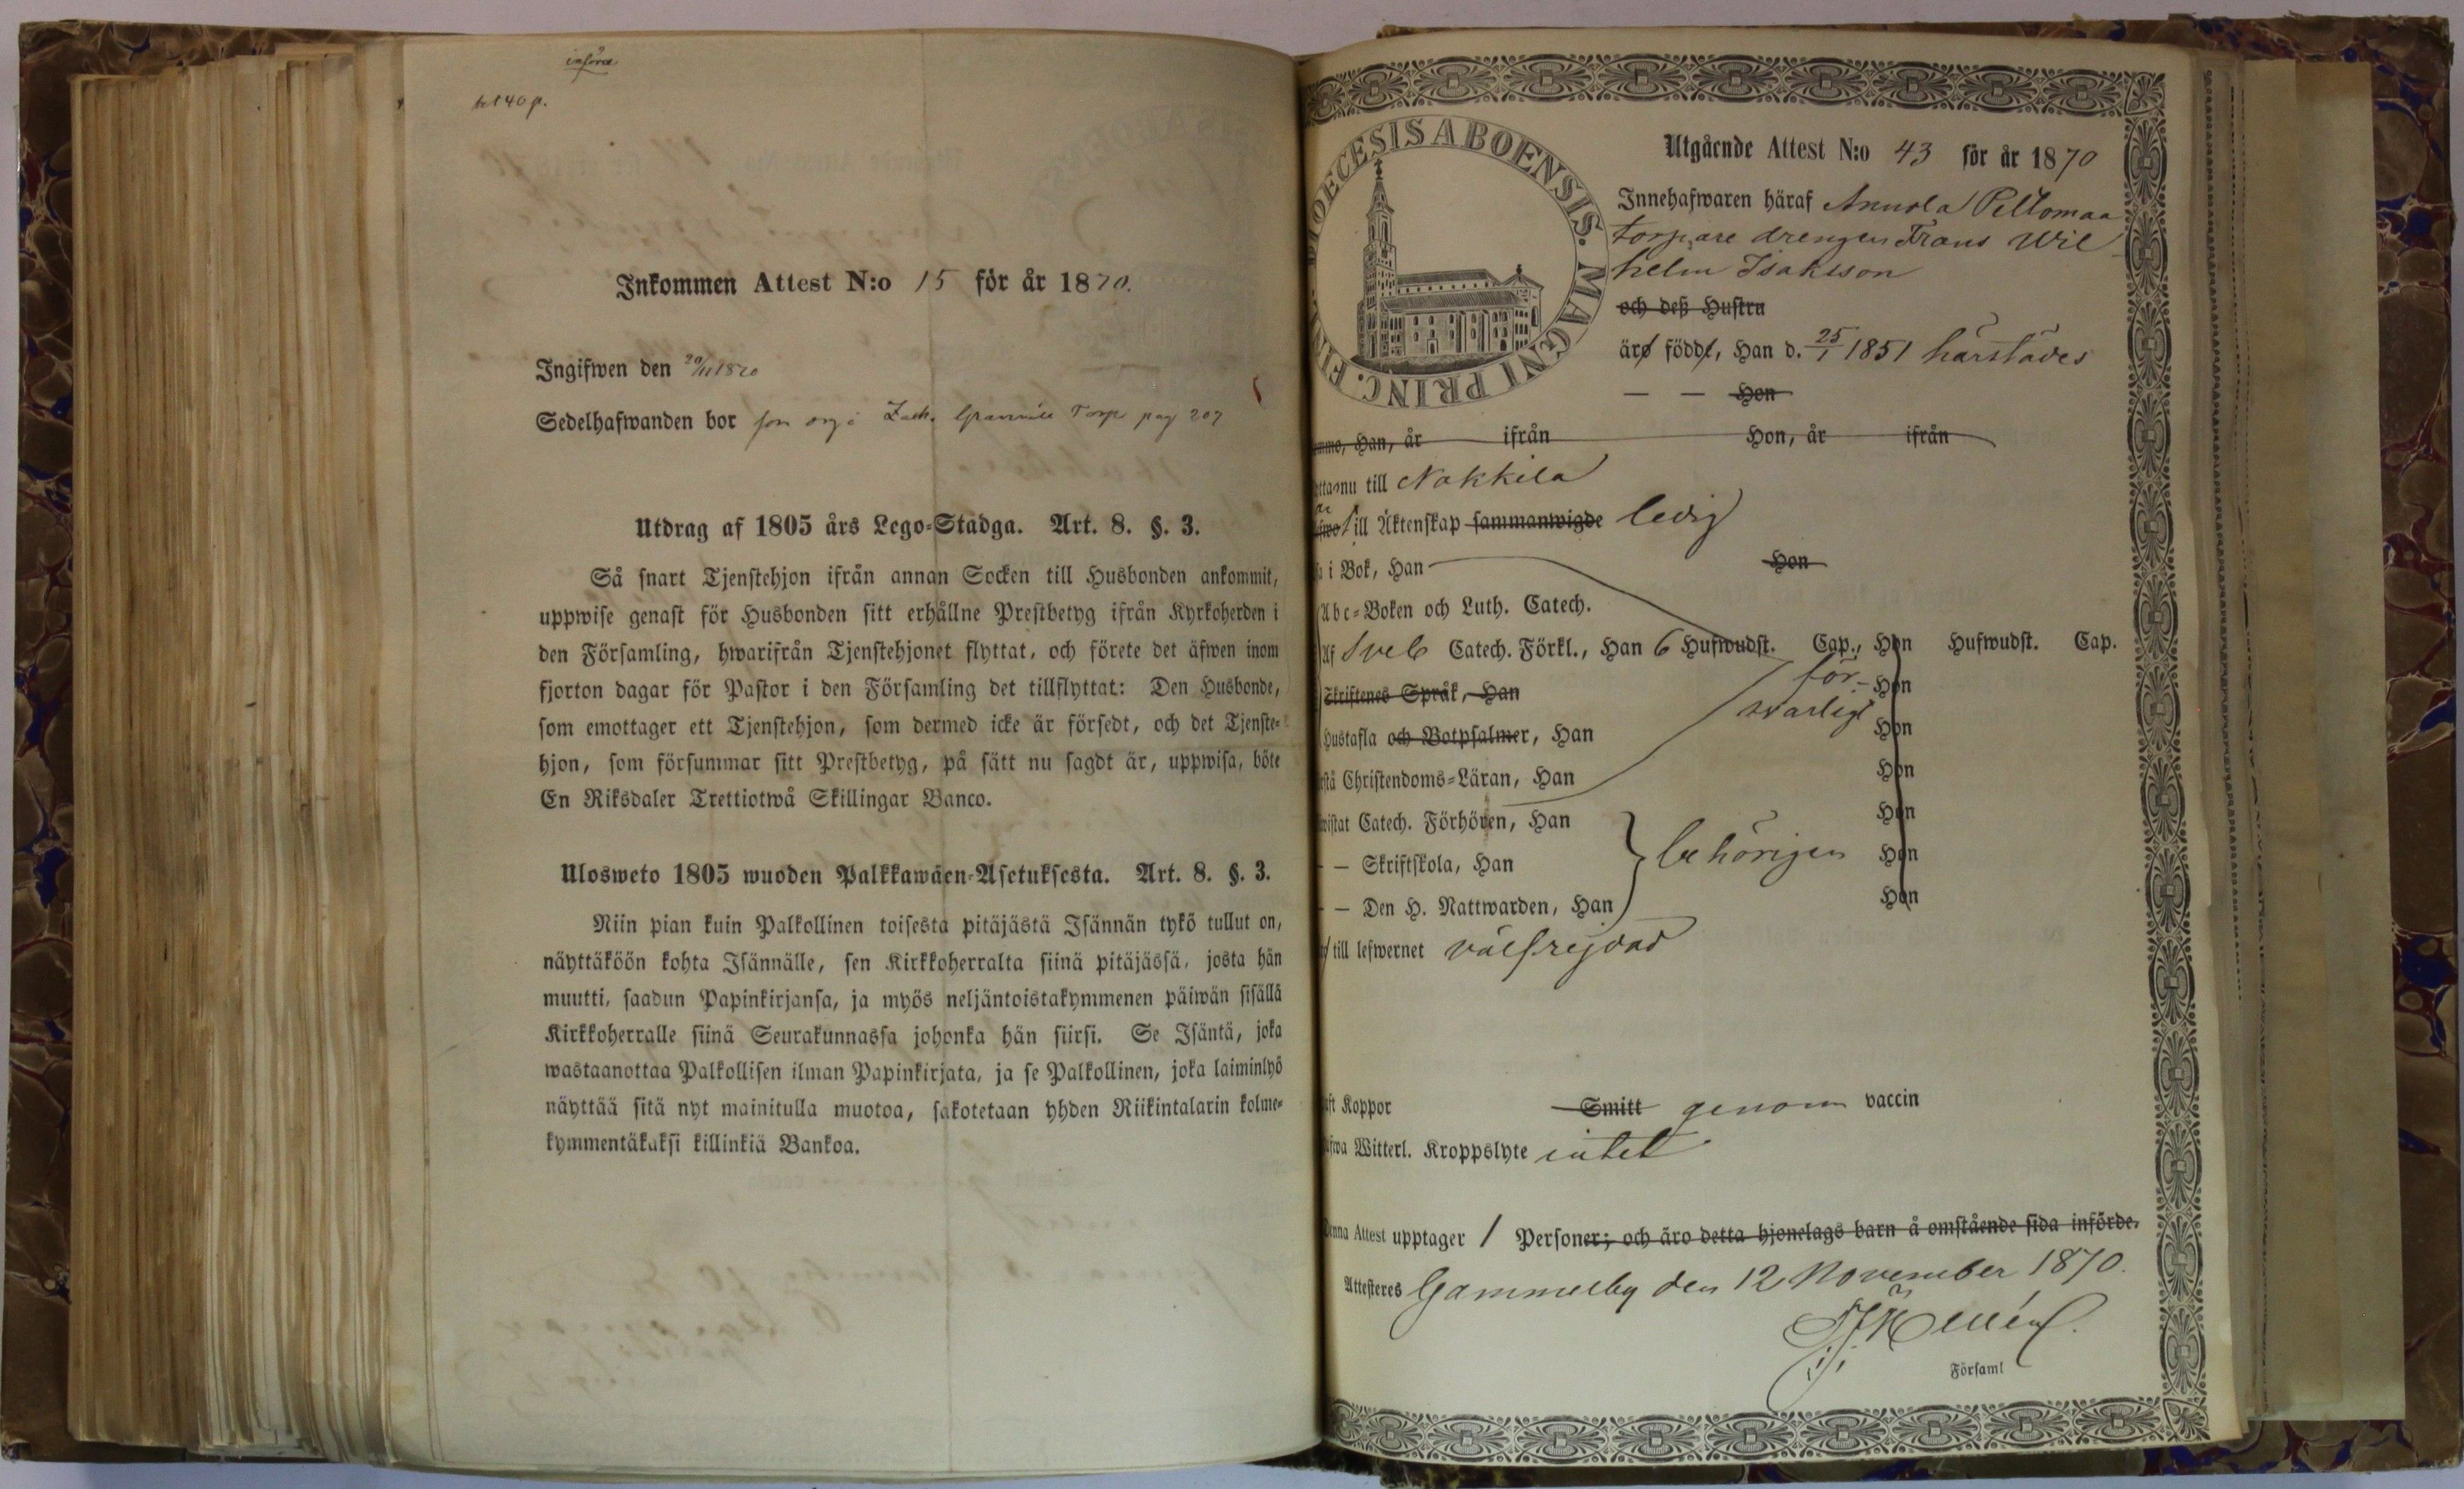 införd
bet 40 p.
Inkommen Attest N:o 15 för år 1870.
Ingifwen den 20/11 1870
Sedelhafwanden bor Torp pag 207
Utdrag af 1805 års Lego-Stadga. Art. 8. §. 3.
Så snart Tjenstehjon ifrån annan Socken till Husbonden ankommit,
uppwise genast för Husbonden sitt erhållne Prestbetyg ifrån Kyrkoherden i
den Församling, hwarifrån Tjenstehjonet flyttat, och förete det äfwen inom
fjorton dagar för Pastor i den Församling det tillflyttat: Den Husbonde,
som emottager ett Tjenstehjon, som dermed icke är försedt, och det Tjenste-
hjon, som försummar sitt Prestbetyg, på sätt nu sagdt är, uppwisa, böte
En Riksdaler Trettiotwå Skillingar Banco.
Ulosweto 1805 wuoden Palkkawäen-Asetuksesta. Art. 8. §. 3.
Niin pian kuin Palkollinen toisesta pitäjästä Isännän tykö tullut on,
näyttäköön kohta Isännälle, sen Kirkkoherralta siinä pitäjässä, josta hän
muutti, saadun Papinkirjansa, ja myös neljäntoistakymmenen päiwän sisällä
Kirkkoherralle siinä Seurakunnassa johonka hän siirsi. Se Isäntä, joka
wastaanottaa Palkollisen ilman Papinkirjata, ja se Palkollinen, joka laiminlyö
näyttää sitä nyt mainitulla muotoa, sakotetaan yhden Riikintalarin kolme-
kymmentäkaksi killinkiä Bankoa.
DIOECESIS ABOENSIS. MAGNI PRINC. FIN
Utgående Attest N:o 43 för år 1870
Innehafwaren häraf Anuola Peltomaa
torpare drengen Frans Wil
helm Isaksson
och deß Hustru
äro född, Han d. 25/1 1851 härstädes
— — Hon
omne, Han, år ifrån Hon, år ifrån
ttar nu till Nakkila
är till Äktenskap sammanwigde ledig
a i Bok, Han Hon
Abc-Boken och Luth. Catech.
Af Sveb Catech. Förkl., Han 6 Hufwudst. Cap., Hon Hufwudst. Cap.
Skriftenes Språk, Han för- Hon
svarligt
Hustafla och Botpsalmer, Han Hon
stå Christendoms-Läran, Han Hon
wistat Catech. Förhören, Han Hon
— — Skriftskola, Han behörigen Hon
— — Den H. Nattwarden, Han Hon
till lefwernet välfrejdad
ft Koppor Smitt genom vaccin
fwa Witterl. Kroppslyte intet
Denna Attest upptager 1 Personer; och äro detta hjonelags barn å omstående sida införde.
Attesteres Gammelby den 12 November 1870.
Församl